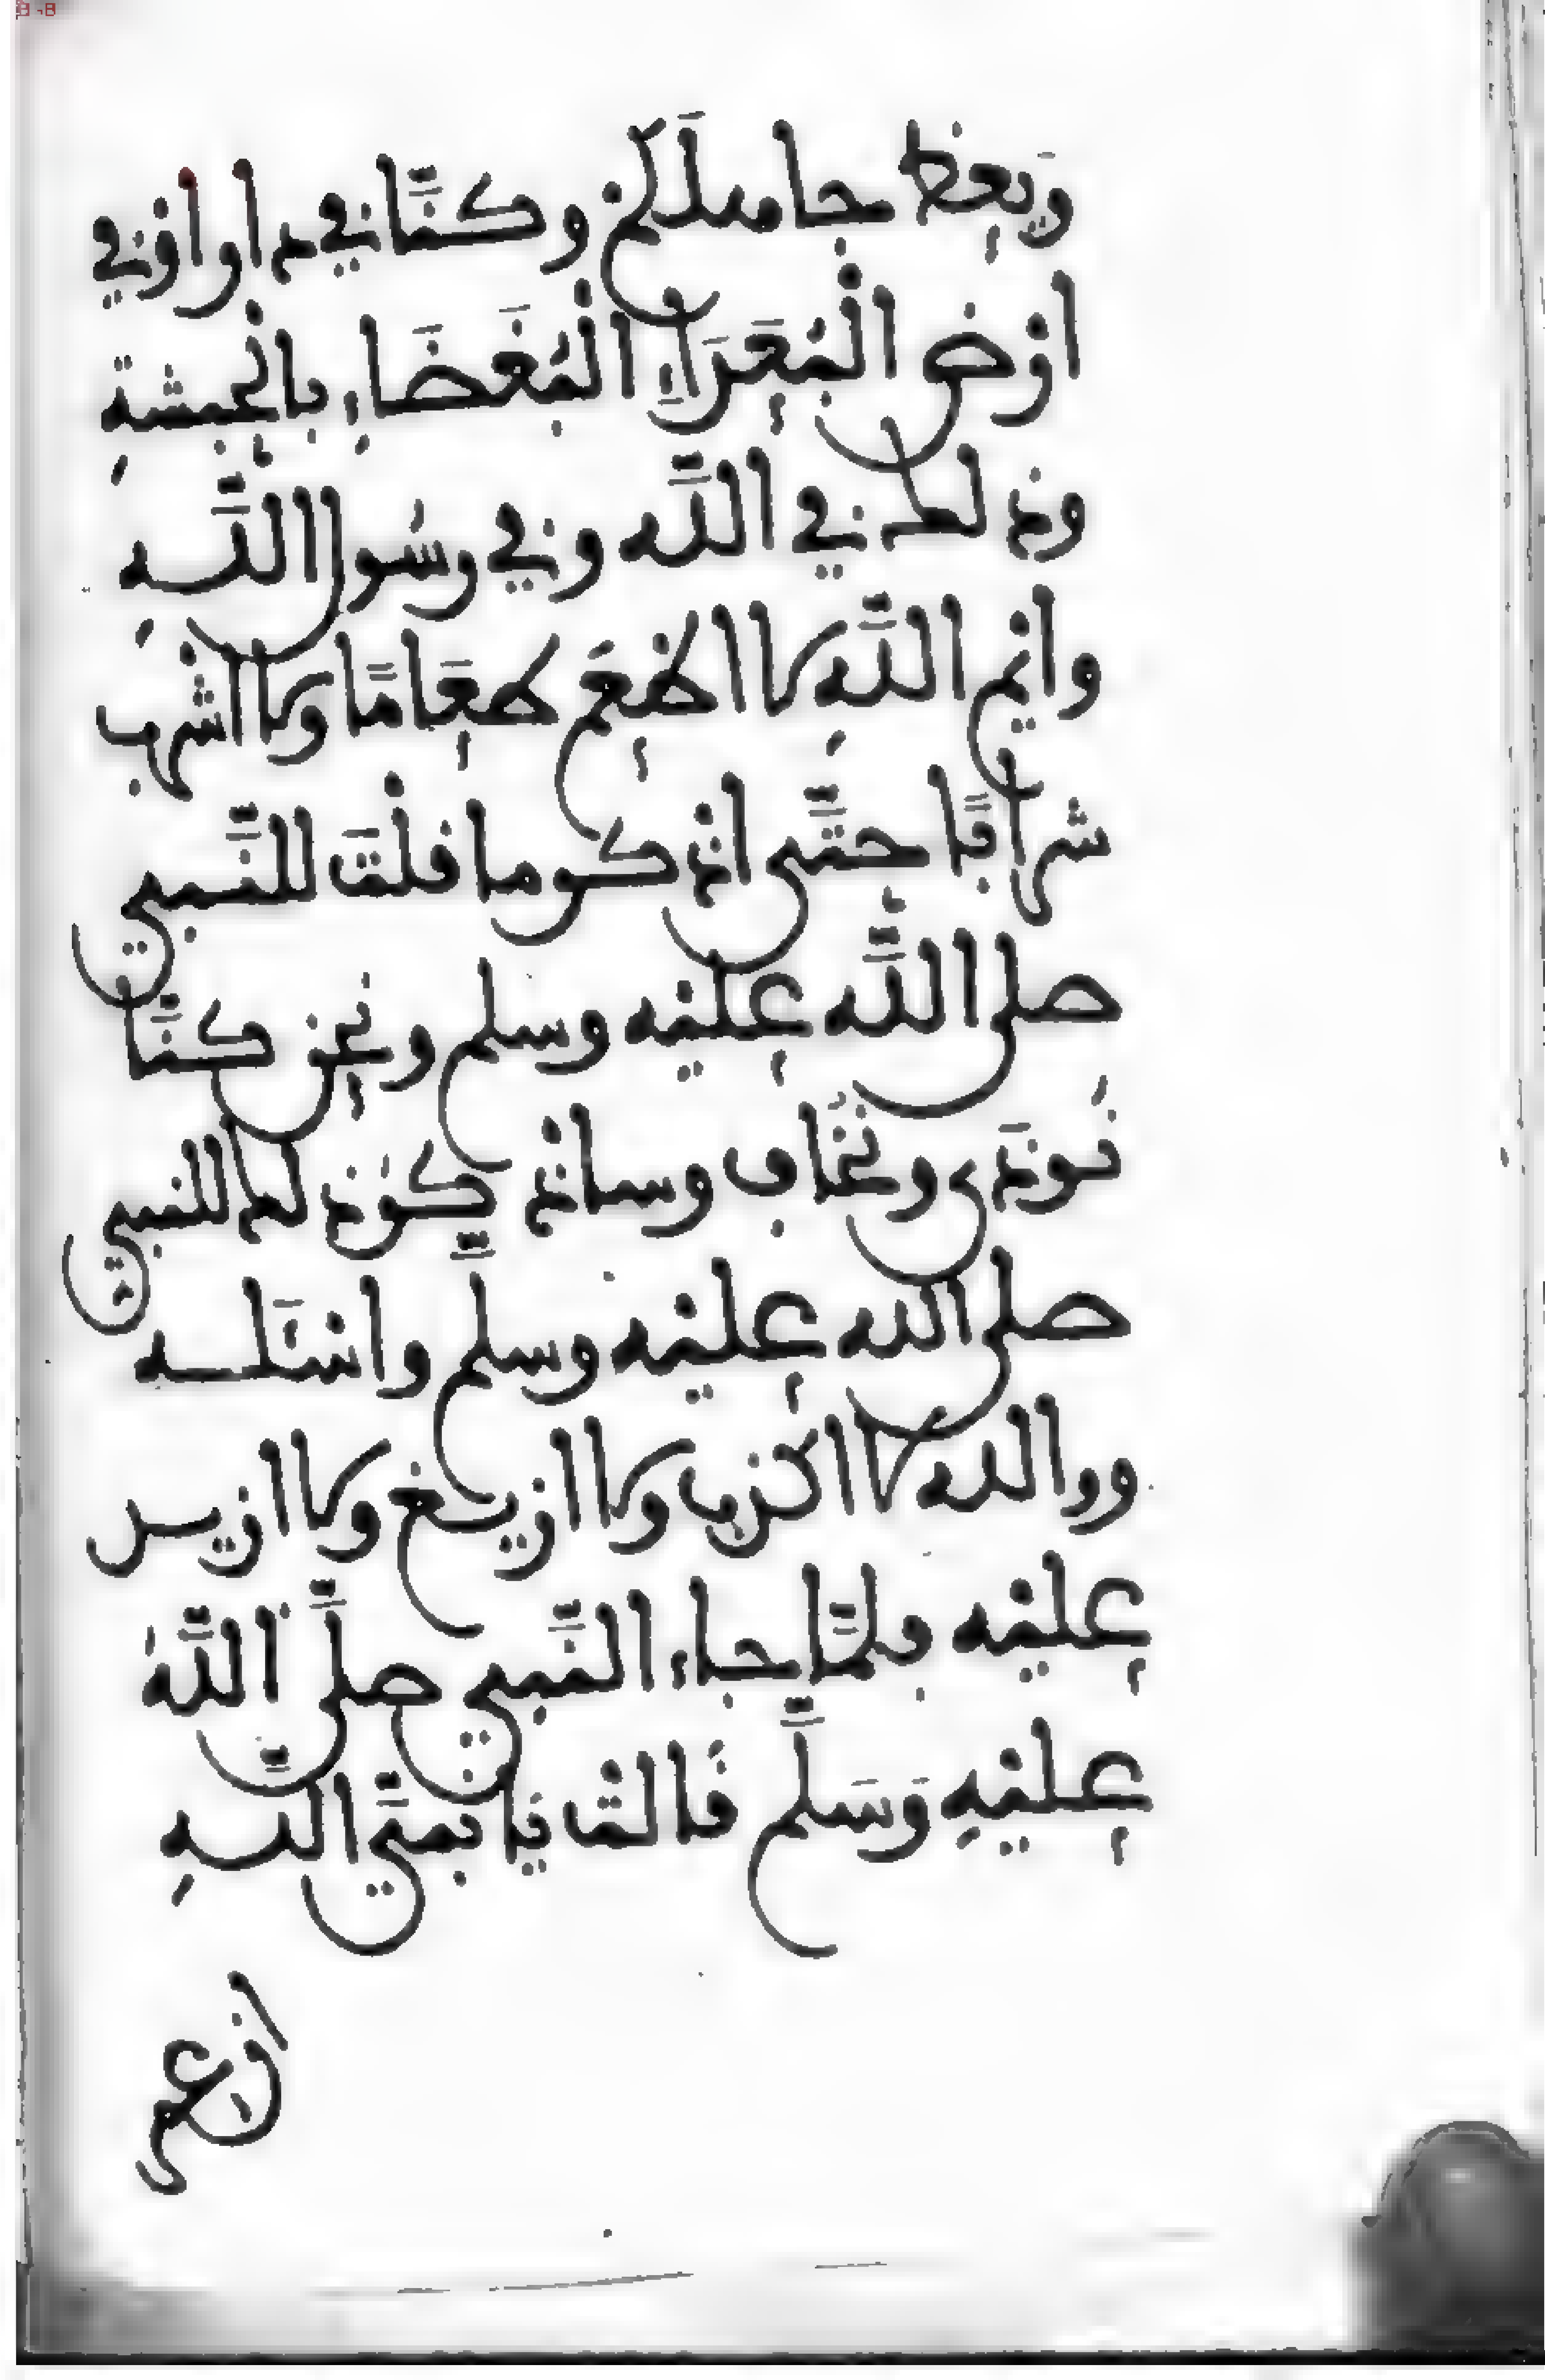 ويعظ جاهلَكم وكنَّا في دار او في
ارض الْبُعَدَاءِ الْبُغَضَاءِ بالْحبشةِ
وذلك في اللَّه وفي رسُول اللَّهِ
وايْم اللَّهِ لا اطْعَم طعَامًا ولا اشْرب
شرابًا حتَّى اذْكر ما قلْتَ للنَّبي
صلى اللَّه عليْه وسلم ونحن كنَّا
نُوذَى ونُخَاف وساذْكر ذلك للنبي
صلى الله عليْه وسلَّم واسْئَلـه
ووالله لا اكْذب ولا ازيغ ولا ازيـد
عليْه فلمَّا جاء النَّبي صلَّى اللَّهُ
عليْهِ وَسَلَّم قَالتْ يَا نَبيَّ اللَّـهِ
ان عمر